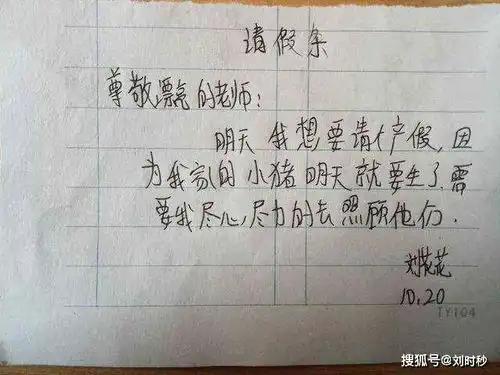 请假条
尊敬漂亮的老师：
明天我想要请个产假,因
为我家的小猪明天就要生了.需
要我尽心,尽力的去照顾他们.
刘花花
10.20
TY104
搜狐号@刘时秒